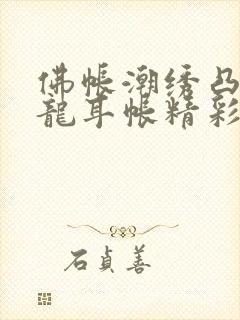 佛帳潮绣凸
龍耳帳精彩
石貞善